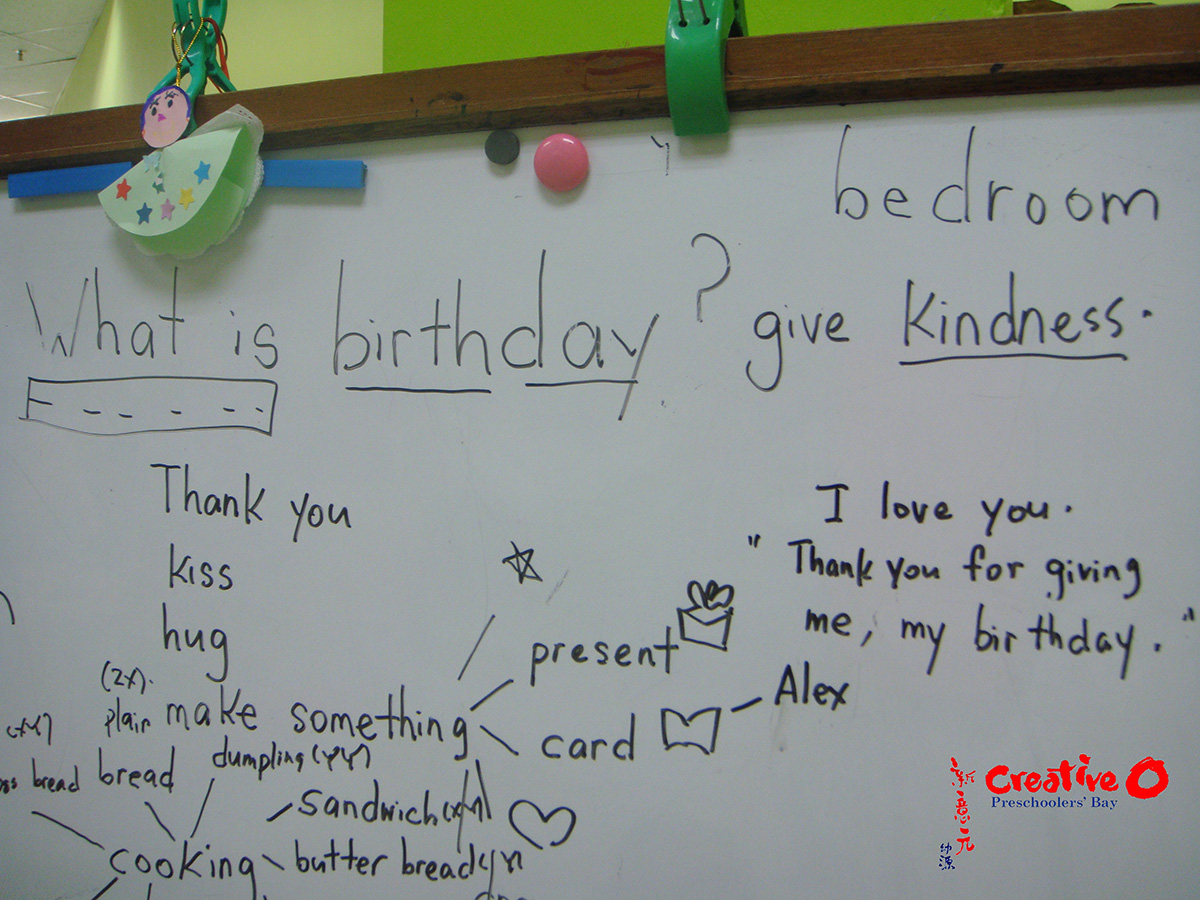 bedroom
What is birthday? give kindness.
Thank you
kiss
hug
I love you.
" Thank you for giving
me, my birthday. "
(2x).
plain make something
present
card
Alex
bread
bread
dumpling
sandwich
butter bread
cooking
新意元
幼源
Creative O
Preschoolers' Bay